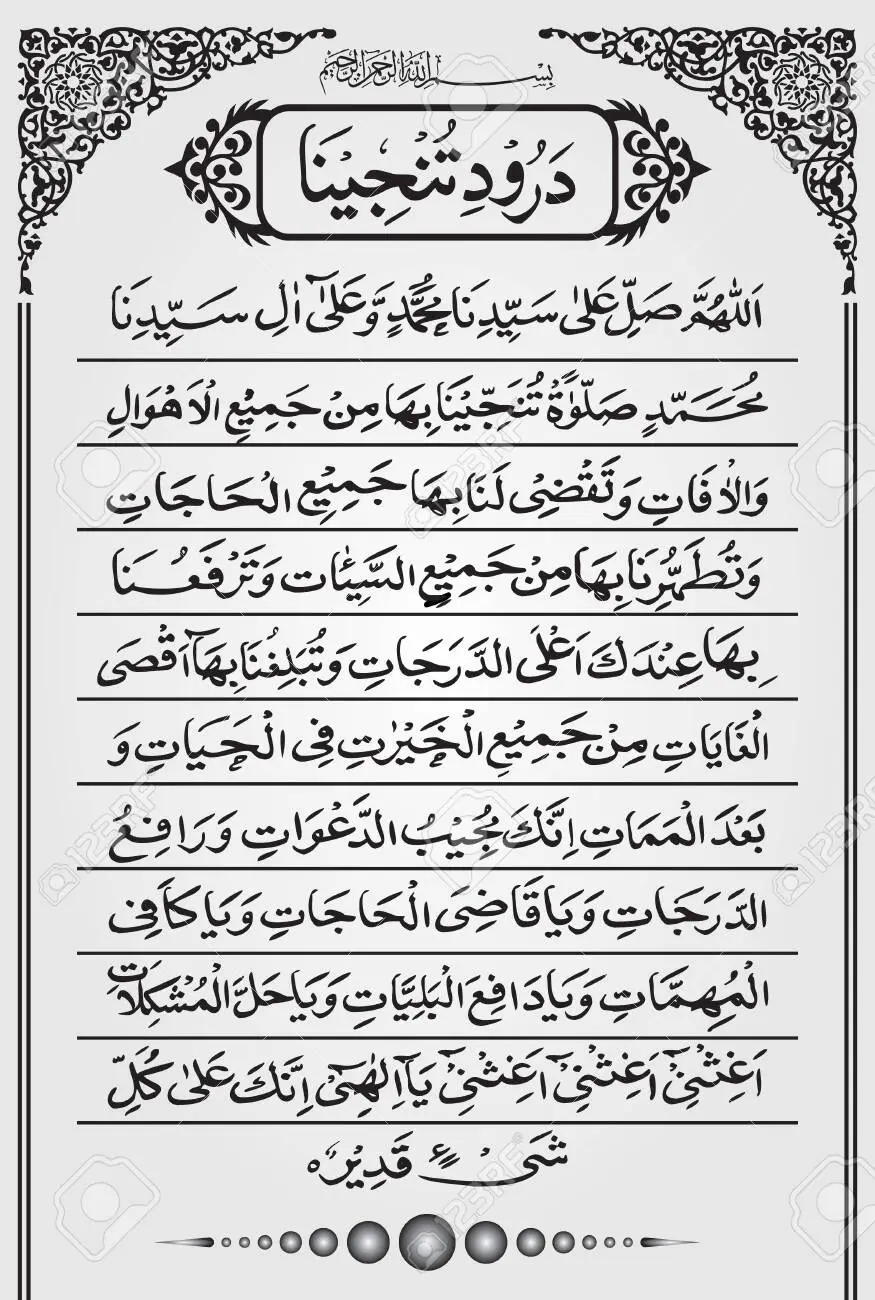 بِسْمِ اللهِ الرَّحْمٰنِ الرَّحِيْمِ
دَرُوْدِ تُنْجِيْنَا
اَللّٰهُمَّ صَلِّ عَلٰى سَيِّدِنَا مُحَمَّدٍ وَّعَلٰٓى اٰلِ سَيِّدِنَا
مُحَمَّدٍ صَلٰوةً تُنَجِّيْنَا بِهَا مِنْ جَمِيْعِ الْاَهْوَالِ
وَالْاٰفَاتِ وَتَقْضِىْ لَنَا بِهَا جَمِيْعِ الْحَاجَاتِ
وَتُطَهِّرُنَا بِهَا مِنْ جَمِيْعِ السَّيِّاٰتِ وَتَرْفَعُنَا
بِهَا عِنْدَكَ اَعْلَى الدَّرَجَاتِ وَتُبَلِّغُنَا بِهَآ اَقْصَى
الْغَايَاتِ مِنْ جَمِيْعِ الْخَيْرٰتِ فِى الْحَيَاتِ وَ
بَعْدَ الْمَمَاتِ اِنَّكَ مُجِيْبُ الدَّعْوَاتِ وَرَافِعُ
الدَّرَجَاتِ وَيَا قَاضِىَ الْحَاجَاتِ وَيَا كَافِى
الْمُهِمَّاتِ وَيَا دَافِعَ الْبَلِيَّاتِ وَيَا حَلَّ الْمُشْكِلَاتِ
اَغِثْنِىْٓ اَغِثْنِىْٓ اَغِثْنِىْٓ يَآ اِلٰهِىْٓ اِنَّكَ عَلٰى كُلِّ
شَىْءٍ قَدِيْرٌ
123RF